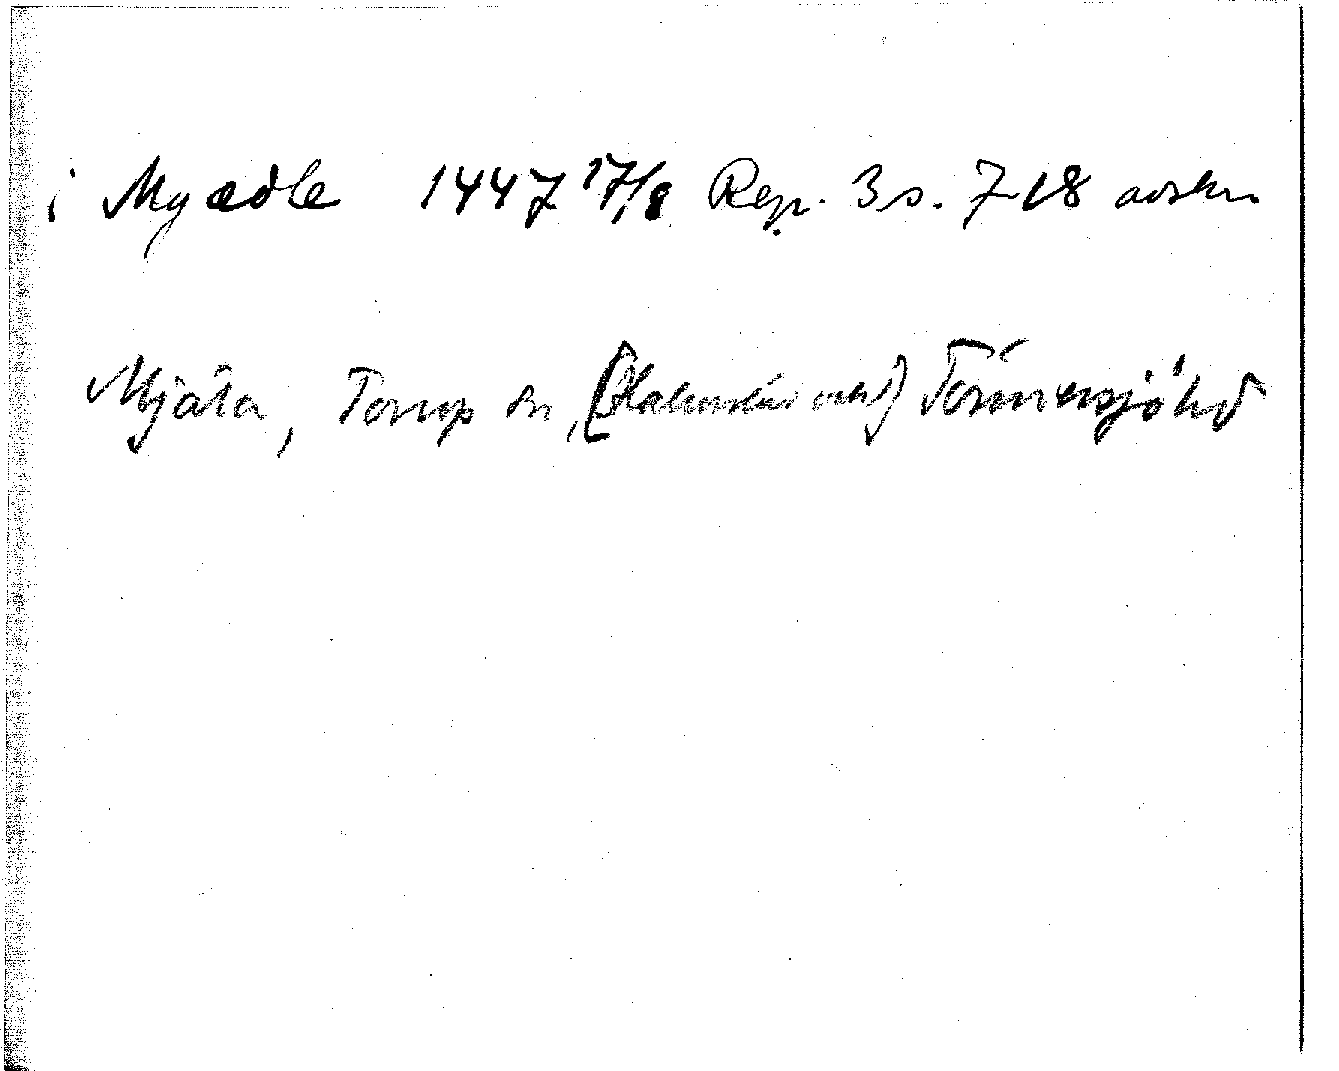 i Myædle 1447 17/8 Rep. 3 s. 718 avskr.
Mjäla, Torup sn, Tönnersjö hd